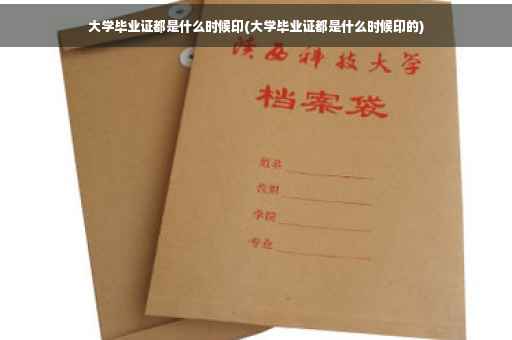 大学毕业证都是什么时候印(大学毕业证都是什么时候印的)
陕西科技大学
档案袋
姓名
学院
专业